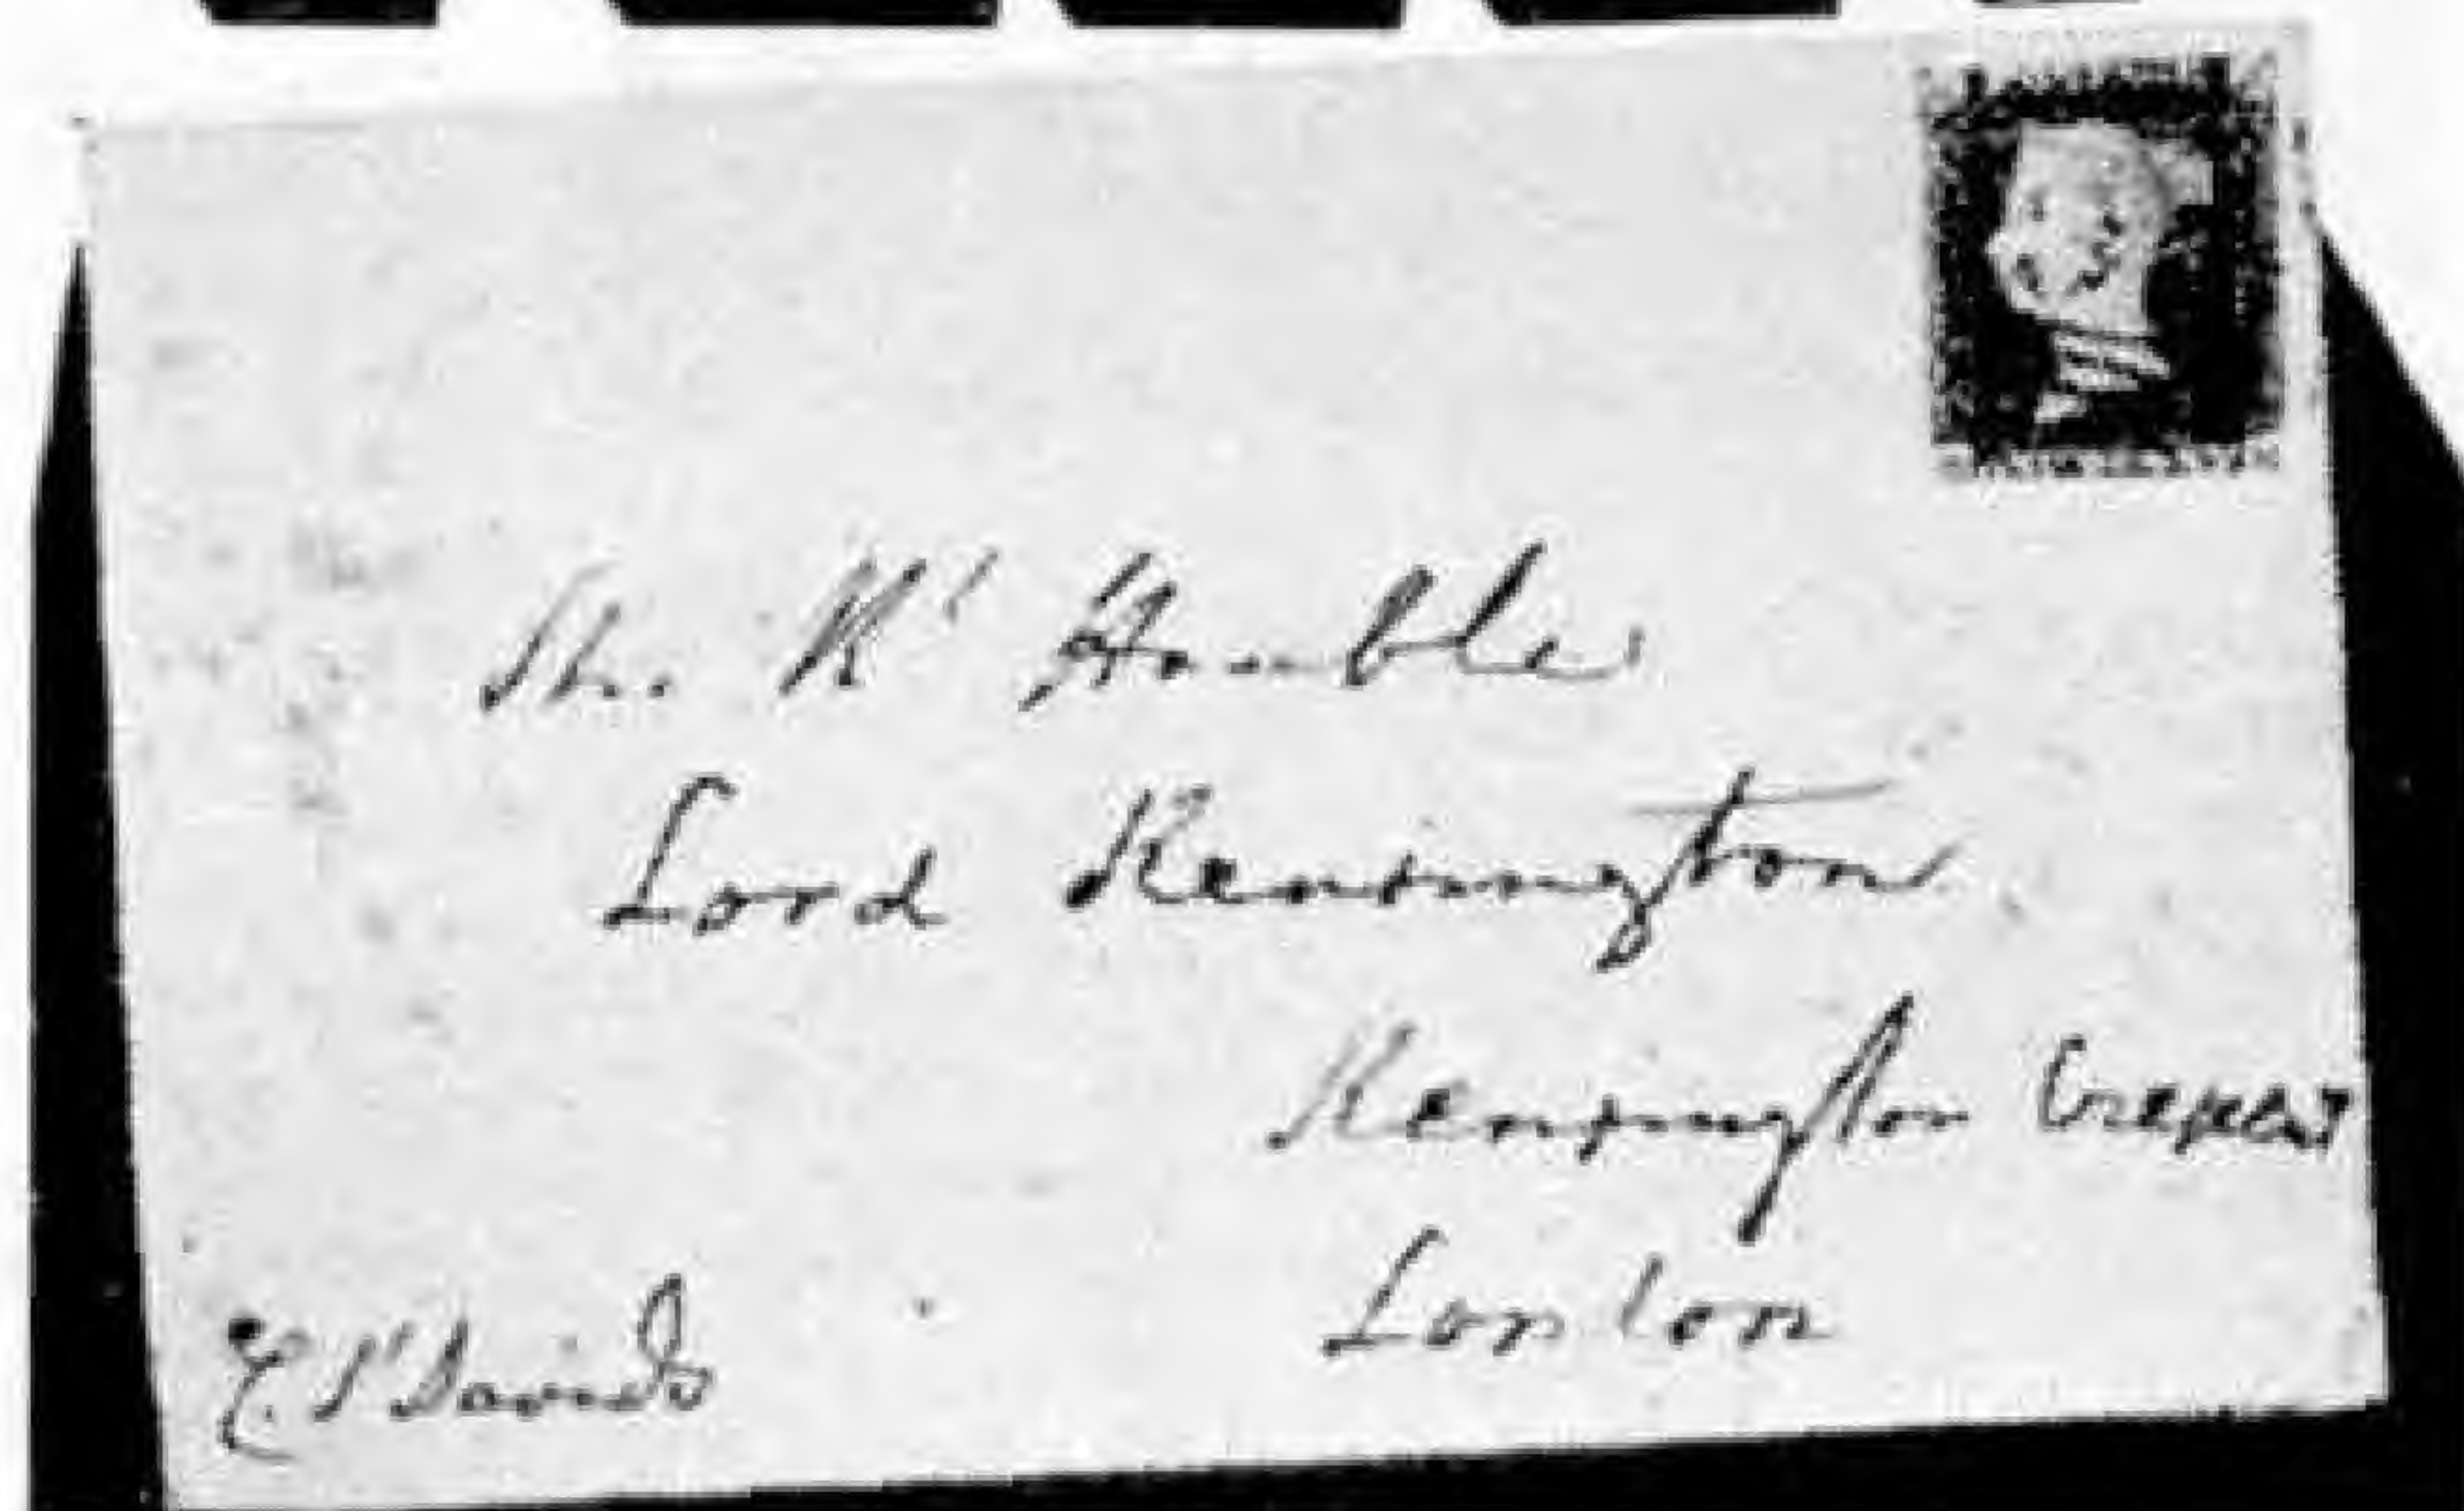 The Rt Honble
Lord Kensington
Kensington Crescent
London
C. St Davids